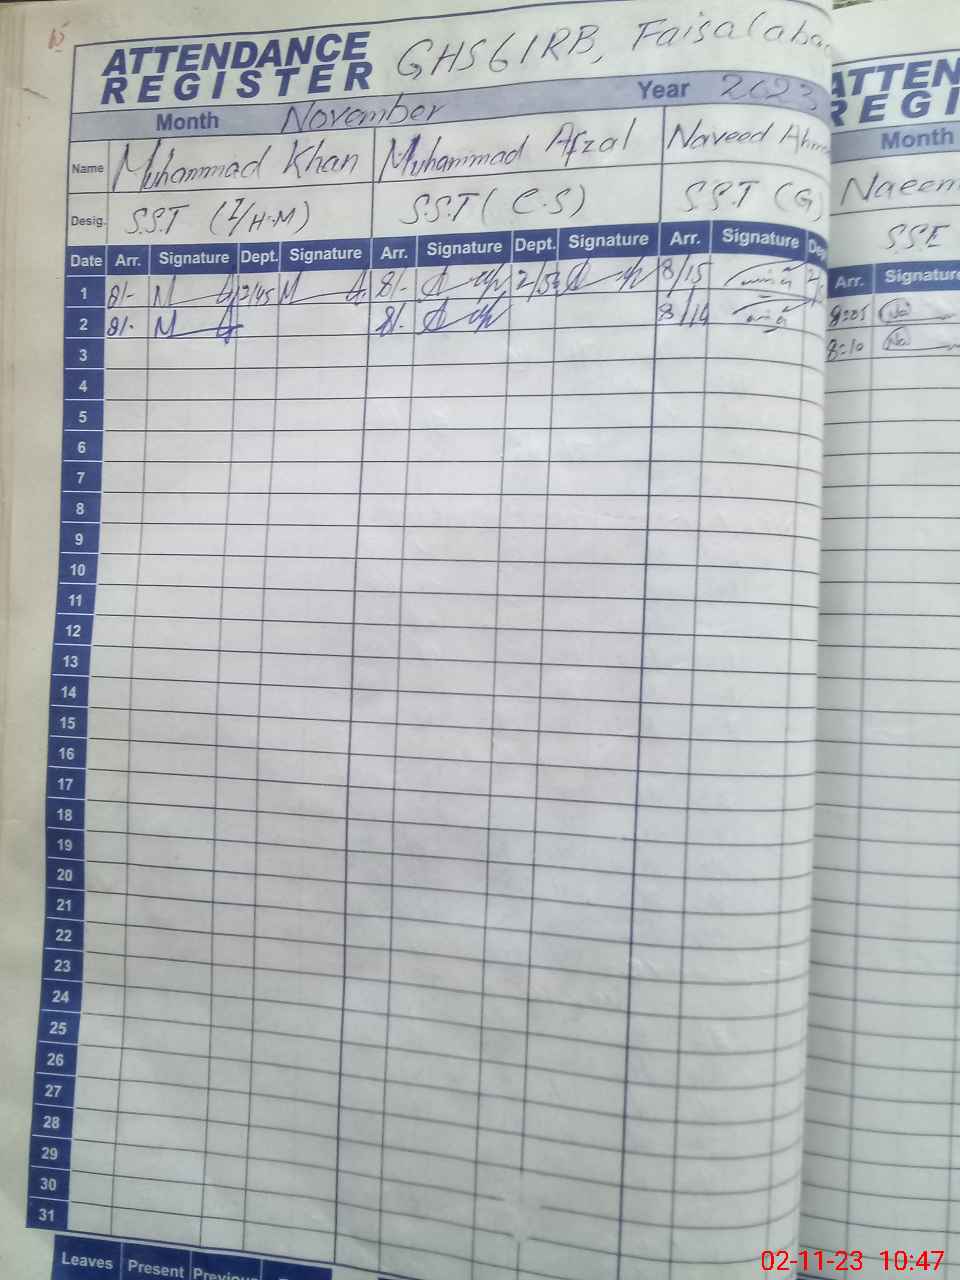 ATTENDANCE REGISTER GHS 61RB, Faisalaba
Month November Year 2023
Name Muhammad Khan Muhammad Afzal Naveed Ahm
Desig. S.S.T (I/H-M) S.S.T (C.S) S.S.T (G)
Date Arr. Signature Dept. Signature Arr. Signature Dept. Signature Arr. Signature De
1 8/- 2/45 8/- 8/15
2 8/- 8/- 8/14
3
4
5
6
7
8
9
10
11
12
13
14
15
16
17
18
19
20
21
22
23
24
25
26
27
28
29
30
31
Leaves Present Previou
ATTEN
REGI
Month
Naeem
SSE
Arr. Signature
8:05 Na
8:10 Na
02-11-23 10:47